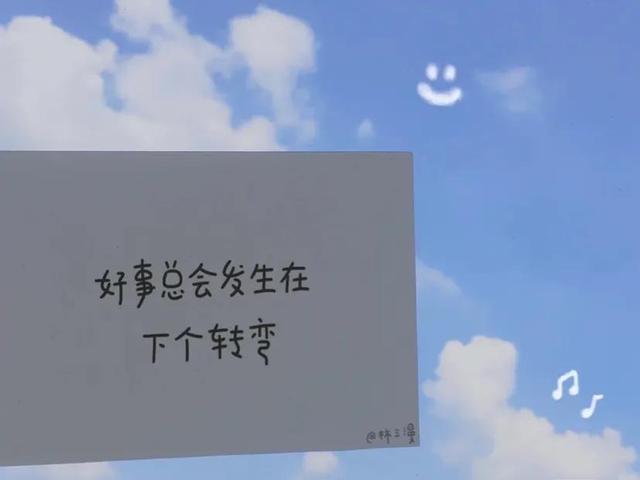 好事总会发生在
下个转弯
@林三漫